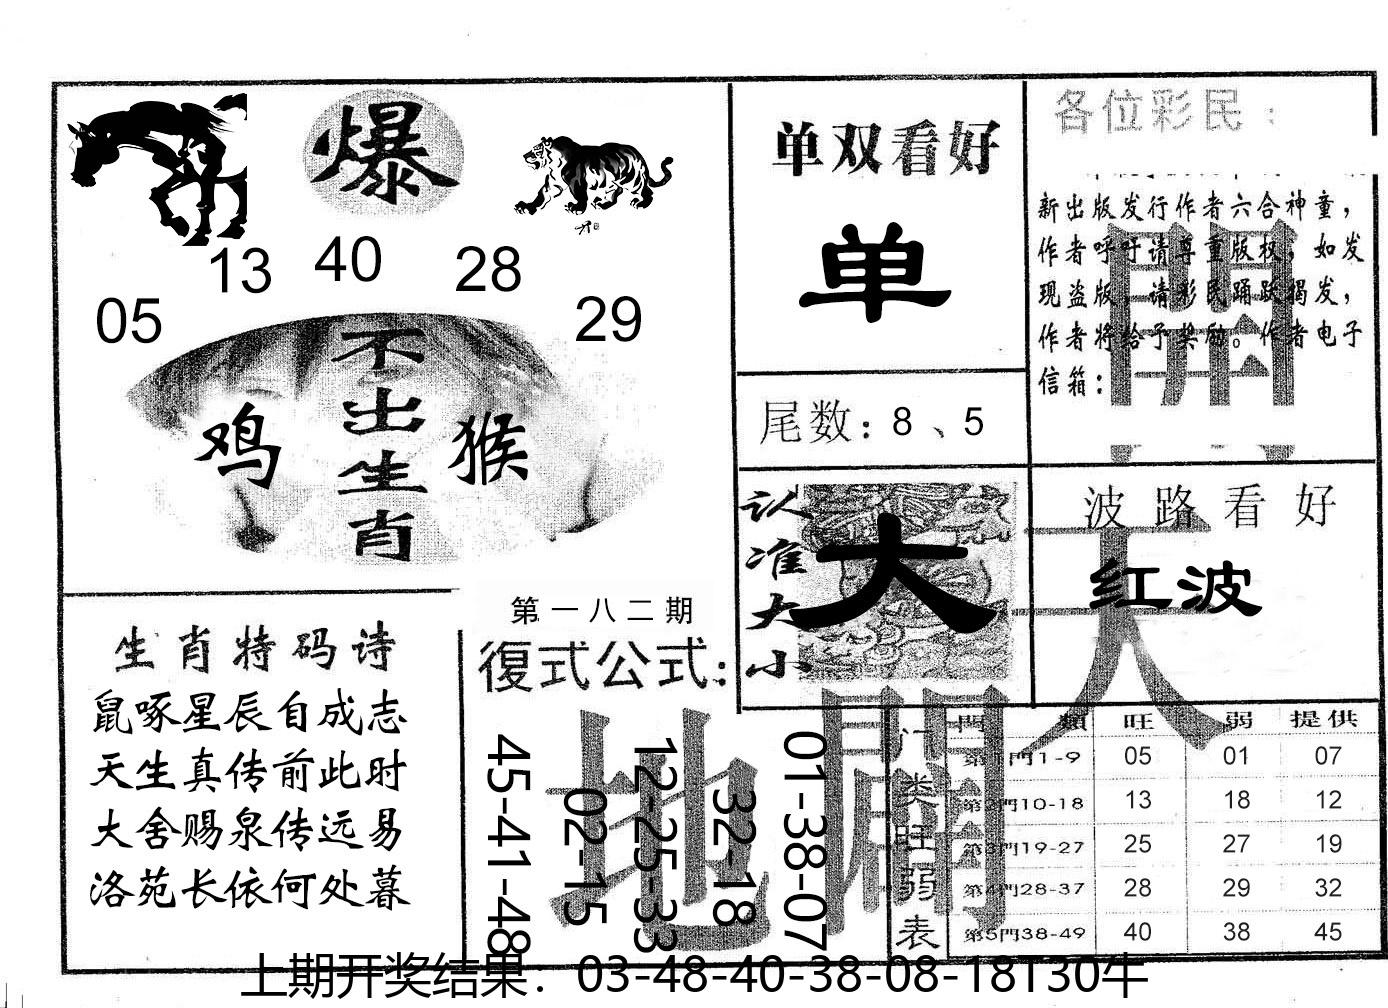 爆
13 40 28
05 29
不出生肖
鸡 猴
单双看好
单
尾数：8、5
各位彩民：
新出版发行作者六合神童，
作者呼吁请尊重版权，如发
现盗版，请彩民踊跃揭发，
作者将给予奖励。作者电子
信箱：
認准大小
大
波路看好
红波
天地
開
生肖特码诗
鼠啄星辰自成志
天生真传前此时
大舍赐泉传远易
洛苑长依何处暮
第一八二期
復式公式：
45-41-48
02-15
12-25-33
32-18
01-38-07
门类旺弱表
門類 旺 弱 提供
第1門1-9 05 01 07
第2門10-18 13 18 12
第3門19-27 25 27 19
第4門28-37 28 29 32
第5門38-49 40 38 45
上期开奖结果：03-48-40-38-08-18T30牛